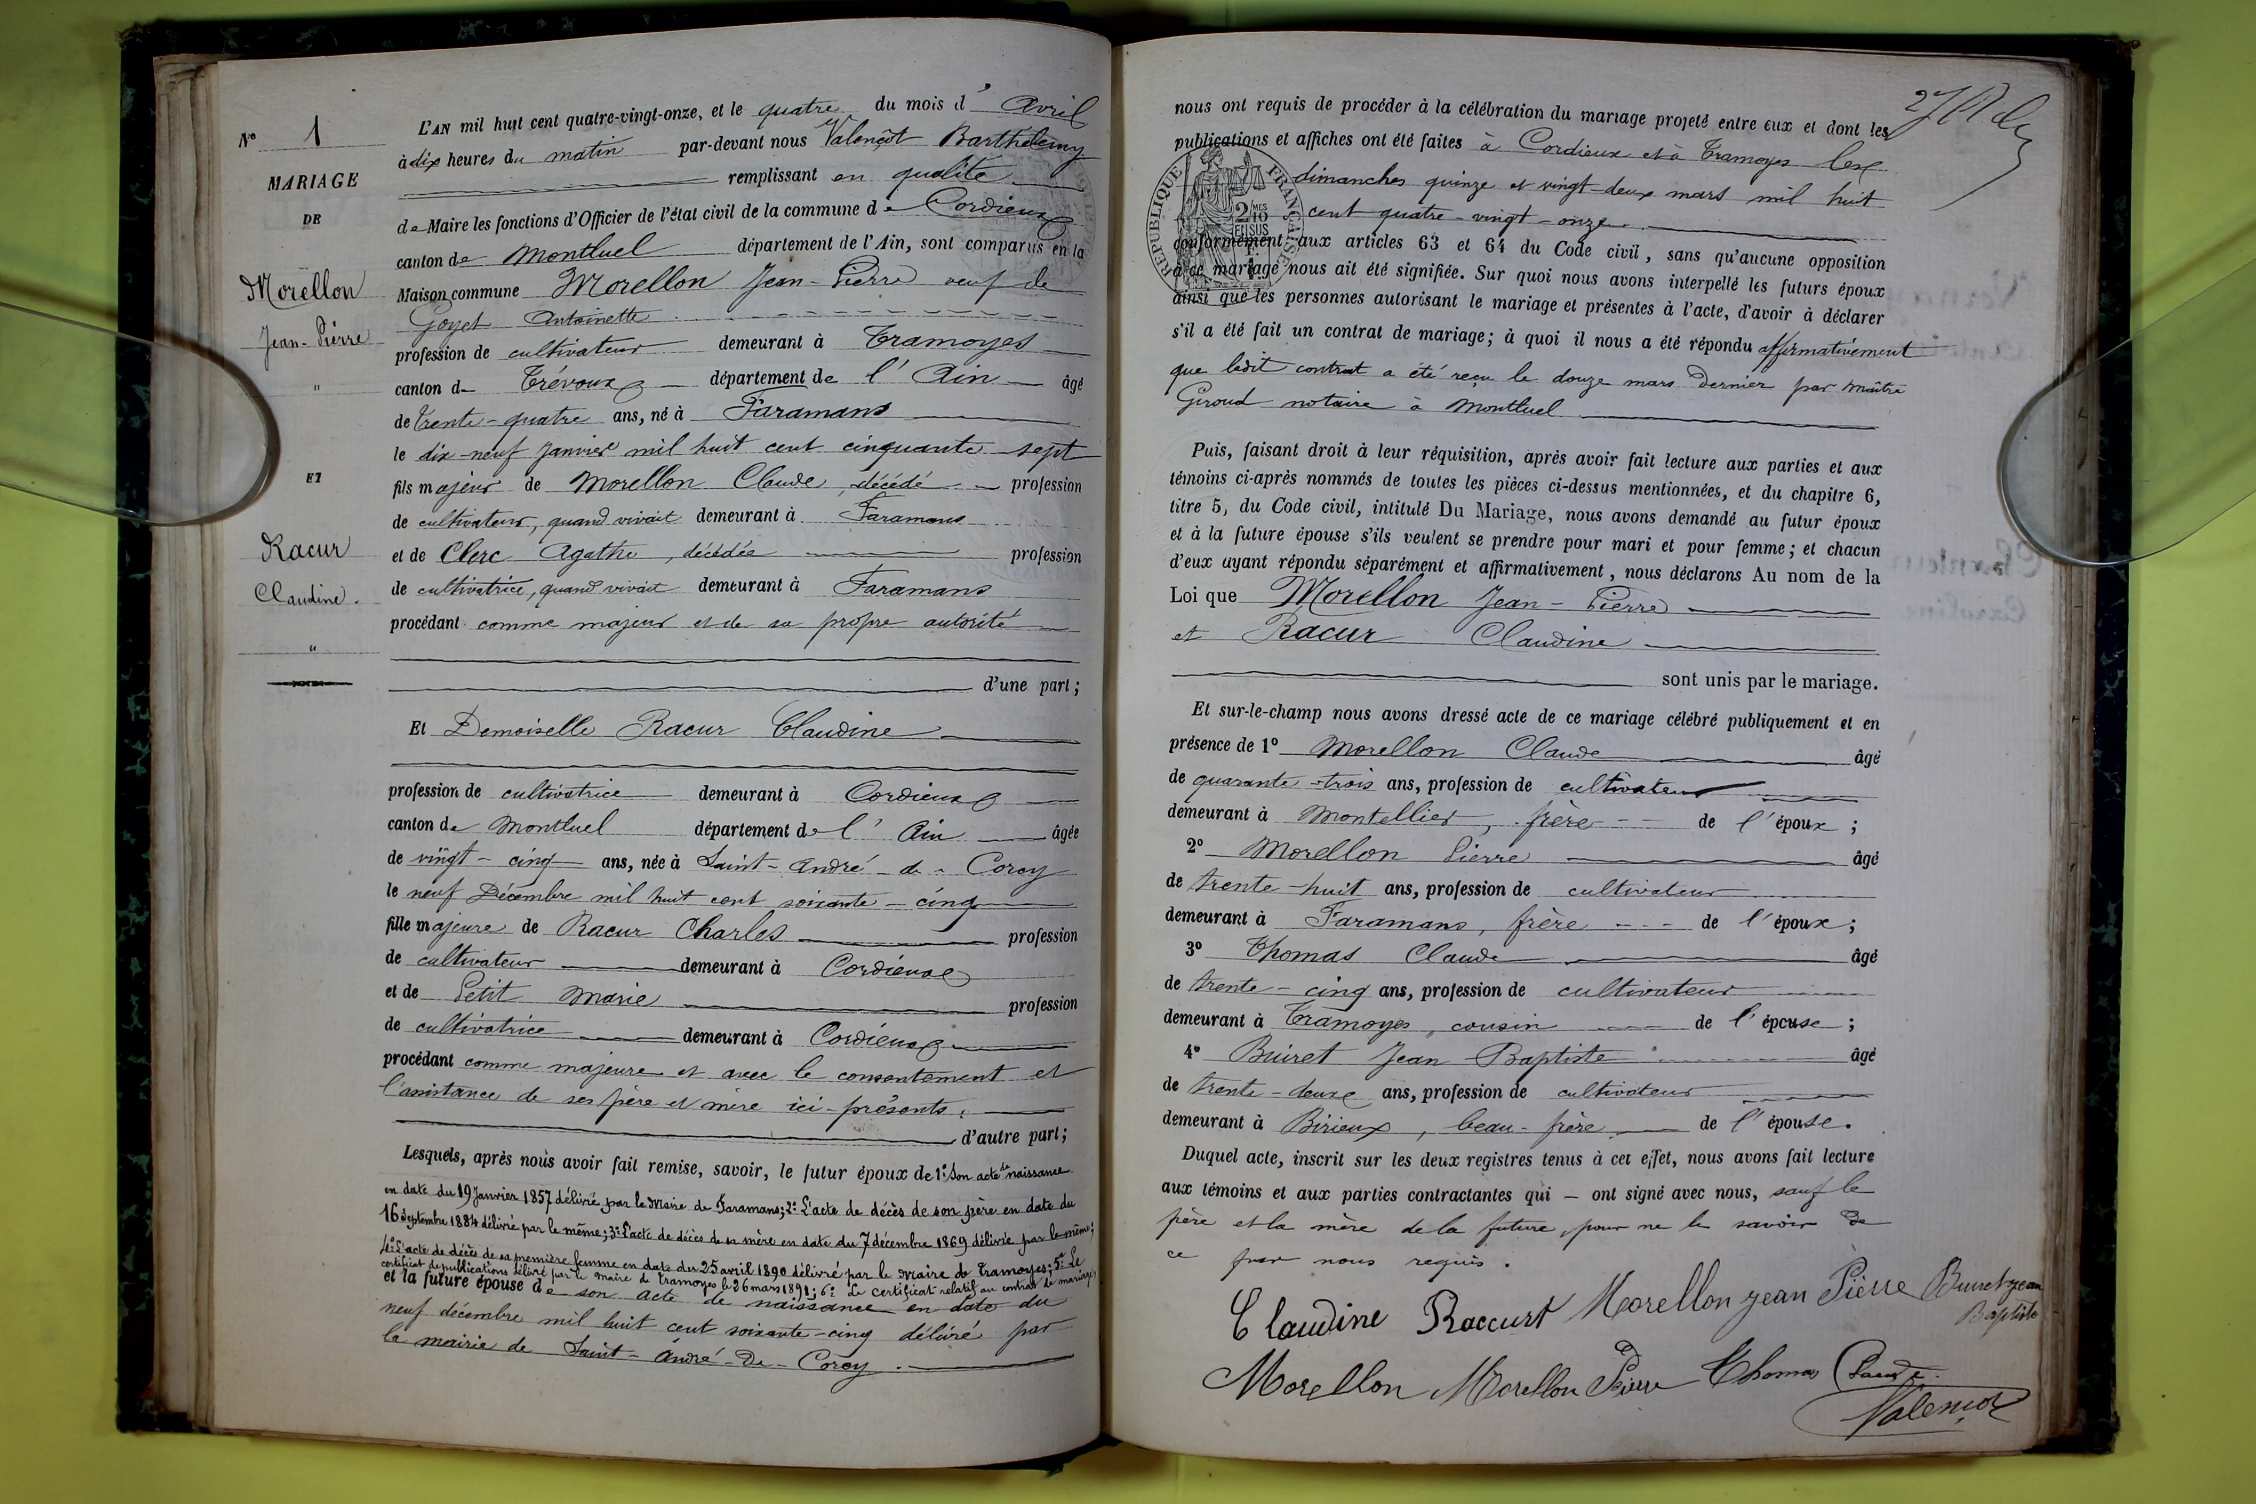 N° 1
MARIAGE
DE
Morellon
Jean-Pierre
"
ET
Racur
Claudine.
"
L'AN mil huit cent quatre-vingt-onze, et le quatre du mois d' Avril
à dix heures du matin par-devant nous Valençot Barthélemy
remplissant en qualité
de Maire les fonctions d'Officier de l'état civil de la commune de Cordieux
canton de Montluel département de l'Ain, sont comparus en la
Maison commune Morellon Jean-Pierre veuf de
Goyet Antoinette
profession de cultivateur demeurant à Tramoyes
canton de Trévoux département de l'Ain âgé
de Trente-quatre ans, né à Faramans
le dix-neuf Janvier mil huit cent cinquante-sept
fils majeur de Morellon Claude, décédé profession
de cultivateur, quand vivait demeurant à Faramans
et de Clerc Agathe, décédée profession
de cultivatrice, quand vivait demeurant à Faramans
procédant comme majeur et de sa propre autorité
d'une part;
Et Demoiselle Racur Claudine
profession de cultivatrice demeurant à Cordieux
canton de Montluel département de l'Ain âgée
de vingt-cinq ans, née à Saint-André-de-Corcy
le neuf Décembre mil huit cent soixante-cinq
fille majeure de Racur Charles profession
de cultivateur demeurant à Cordieux
et de Petit Marie profession
de cultivatrice demeurant à Cordieux
procédant comme majeure et avec le consentement et
l'assistance de ses père et mère ici-présents,
d'autre part;
Lesquels, après nous avoir fait remise, savoir, le futur époux de 1° Son acte de naissance
en date du 19 Janvier 1857 délivré par le Maire de Faramans; 2° L'acte de décès de son père en date du
16 Septembre 1884 délivré par le même; 3° L'acte de décès de sa mère en date du 7 décembre 1869 délivré par le même;
4° L'acte de décès de sa première femme en date du 25 avril 1890 délivré par le Maire de Tramoyes; 5° Le
certificat de publications délivré par le Maire de Tramoyes le 26 mars 1891; 6° Le certificat relatif au contrat de mariage;
et la future épouse de son acte de naissance en date du
neuf décembre mil huit cent soixante-cinq délivré par
la mairie de Saint-André-De-Corcy.
nous ont requis de procéder à la célébration du mariage projeté entre eux et dont les
publications et affiches ont été faites à Cordieux et à Tramoyes les
dimanches quinze et vingt-deux mars mil huit
cent quatre-vingt-onze
RÉPUBLIQUE FRANÇAISE
2 MES 10 EN SUS
conformément aux articles 63 et 64 du Code civil, sans qu'aucune opposition
à ce mariage nous ait été signifiée. Sur quoi nous avons interpellé les futurs époux
ainsi que les personnes autorisant le mariage et présentes à l'acte, d'avoir à déclarer
s'il a été fait un contrat de mariage; à quoi il nous a été répondu affirmativement
que ledit contrat a été reçu le douze mars Dernier par maître
Giroud notaire à Montluel
Puis, faisant droit à leur réquisition, après avoir fait lecture aux parties et aux
témoins ci-après nommés de toutes les pièces ci-dessus mentionnées, et du chapitre 6,
titre 5, du Code civil, intitulé Du Mariage, nous avons demandé au futur époux
et à la future épouse s'ils veulent se prendre pour mari et pour femme; et chacun
d'eux ayant répondu séparément et affirmativement, nous déclarons Au nom de la
Loi que Morellon Jean-Pierre
et Racur Claudine
sont unis par le mariage.
Et sur-le-champ nous avons dressé acte de ce mariage célébré publiquement et en
présence de 1° Morellon Claude âgé
de quarante-trois ans, profession de cultivateur
demeurant à Montellier, frère de l'époux;
2° Morellon Pierre âgé
de trente-huit ans, profession de cultivateur
demeurant à Faramans, frère de l'époux;
3° Thomas Claude âgé
de trente-cinq ans, profession de cultivateur
demeurant à Tramoyes, cousin de l'épouse;
4° Buiret Jean-Baptiste âgé
de trente-deux ans, profession de cultivateur
demeurant à Birieux, beau-frère de l'épouse.
Duquel acte, inscrit sur les deux registres tenus à cet effet, nous avons fait lecture
aux témoins et aux parties contractantes qui ont signé avec nous, sauf le
père et la mère de la future, pour ne le savoir de
ce par nous requis.
Claudine Raccurt Morellon jean Pierre Buiret jean
Baptiste
Morellon Morellon Pierre Thomas Claude
Valençot